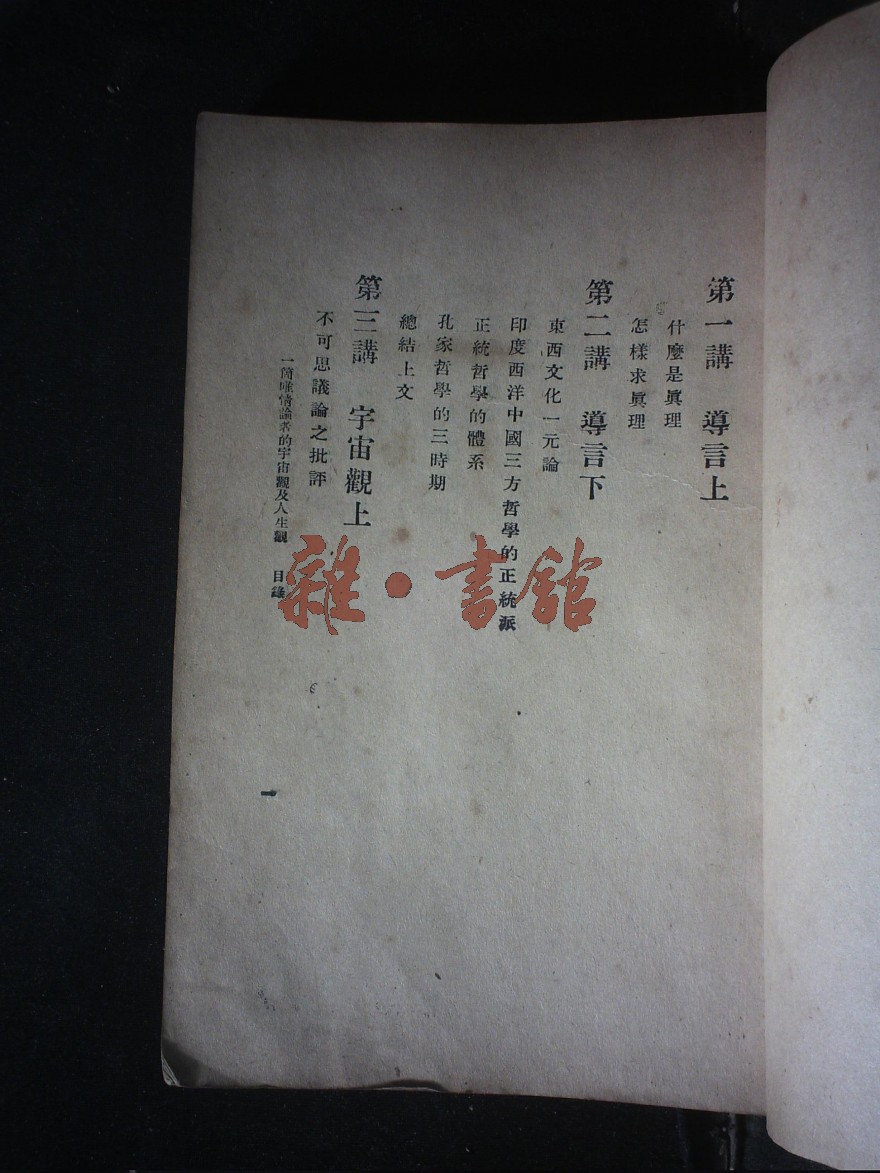 第一講　導言上
什麼是眞理
怎樣求眞理
第二講　導言下
東西文化一元論
印度西洋中國三方哲學的正統派
正統哲學的體系
孔家哲學的三時期
總結上文
第三講　宇宙觀上
不可思議論之批評
一箇唯情論者的宇宙觀及人生觀　目錄
一
雜·書館